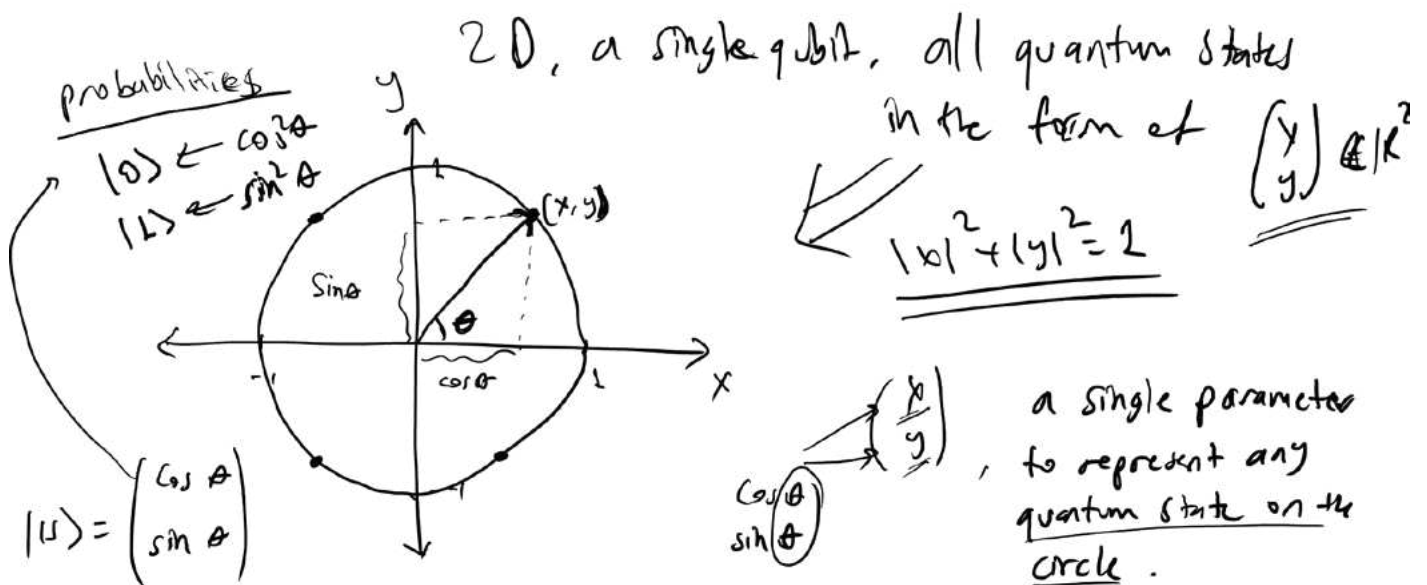 2D, a single qubit, all quantum states
in the form of (x y) ∈ ℝ²
|x|² + |y|² = 1
probabilities
|0> ← cos²θ
|1> ← sin²θ
y
1
(x, y)
sinθ
θ
-1
cosθ
1
x
-1
|u> = (cos θ
sin θ)
(x
y)
cos θ
sin θ
, a single parameter
to represent any
quantum state on the
circle.